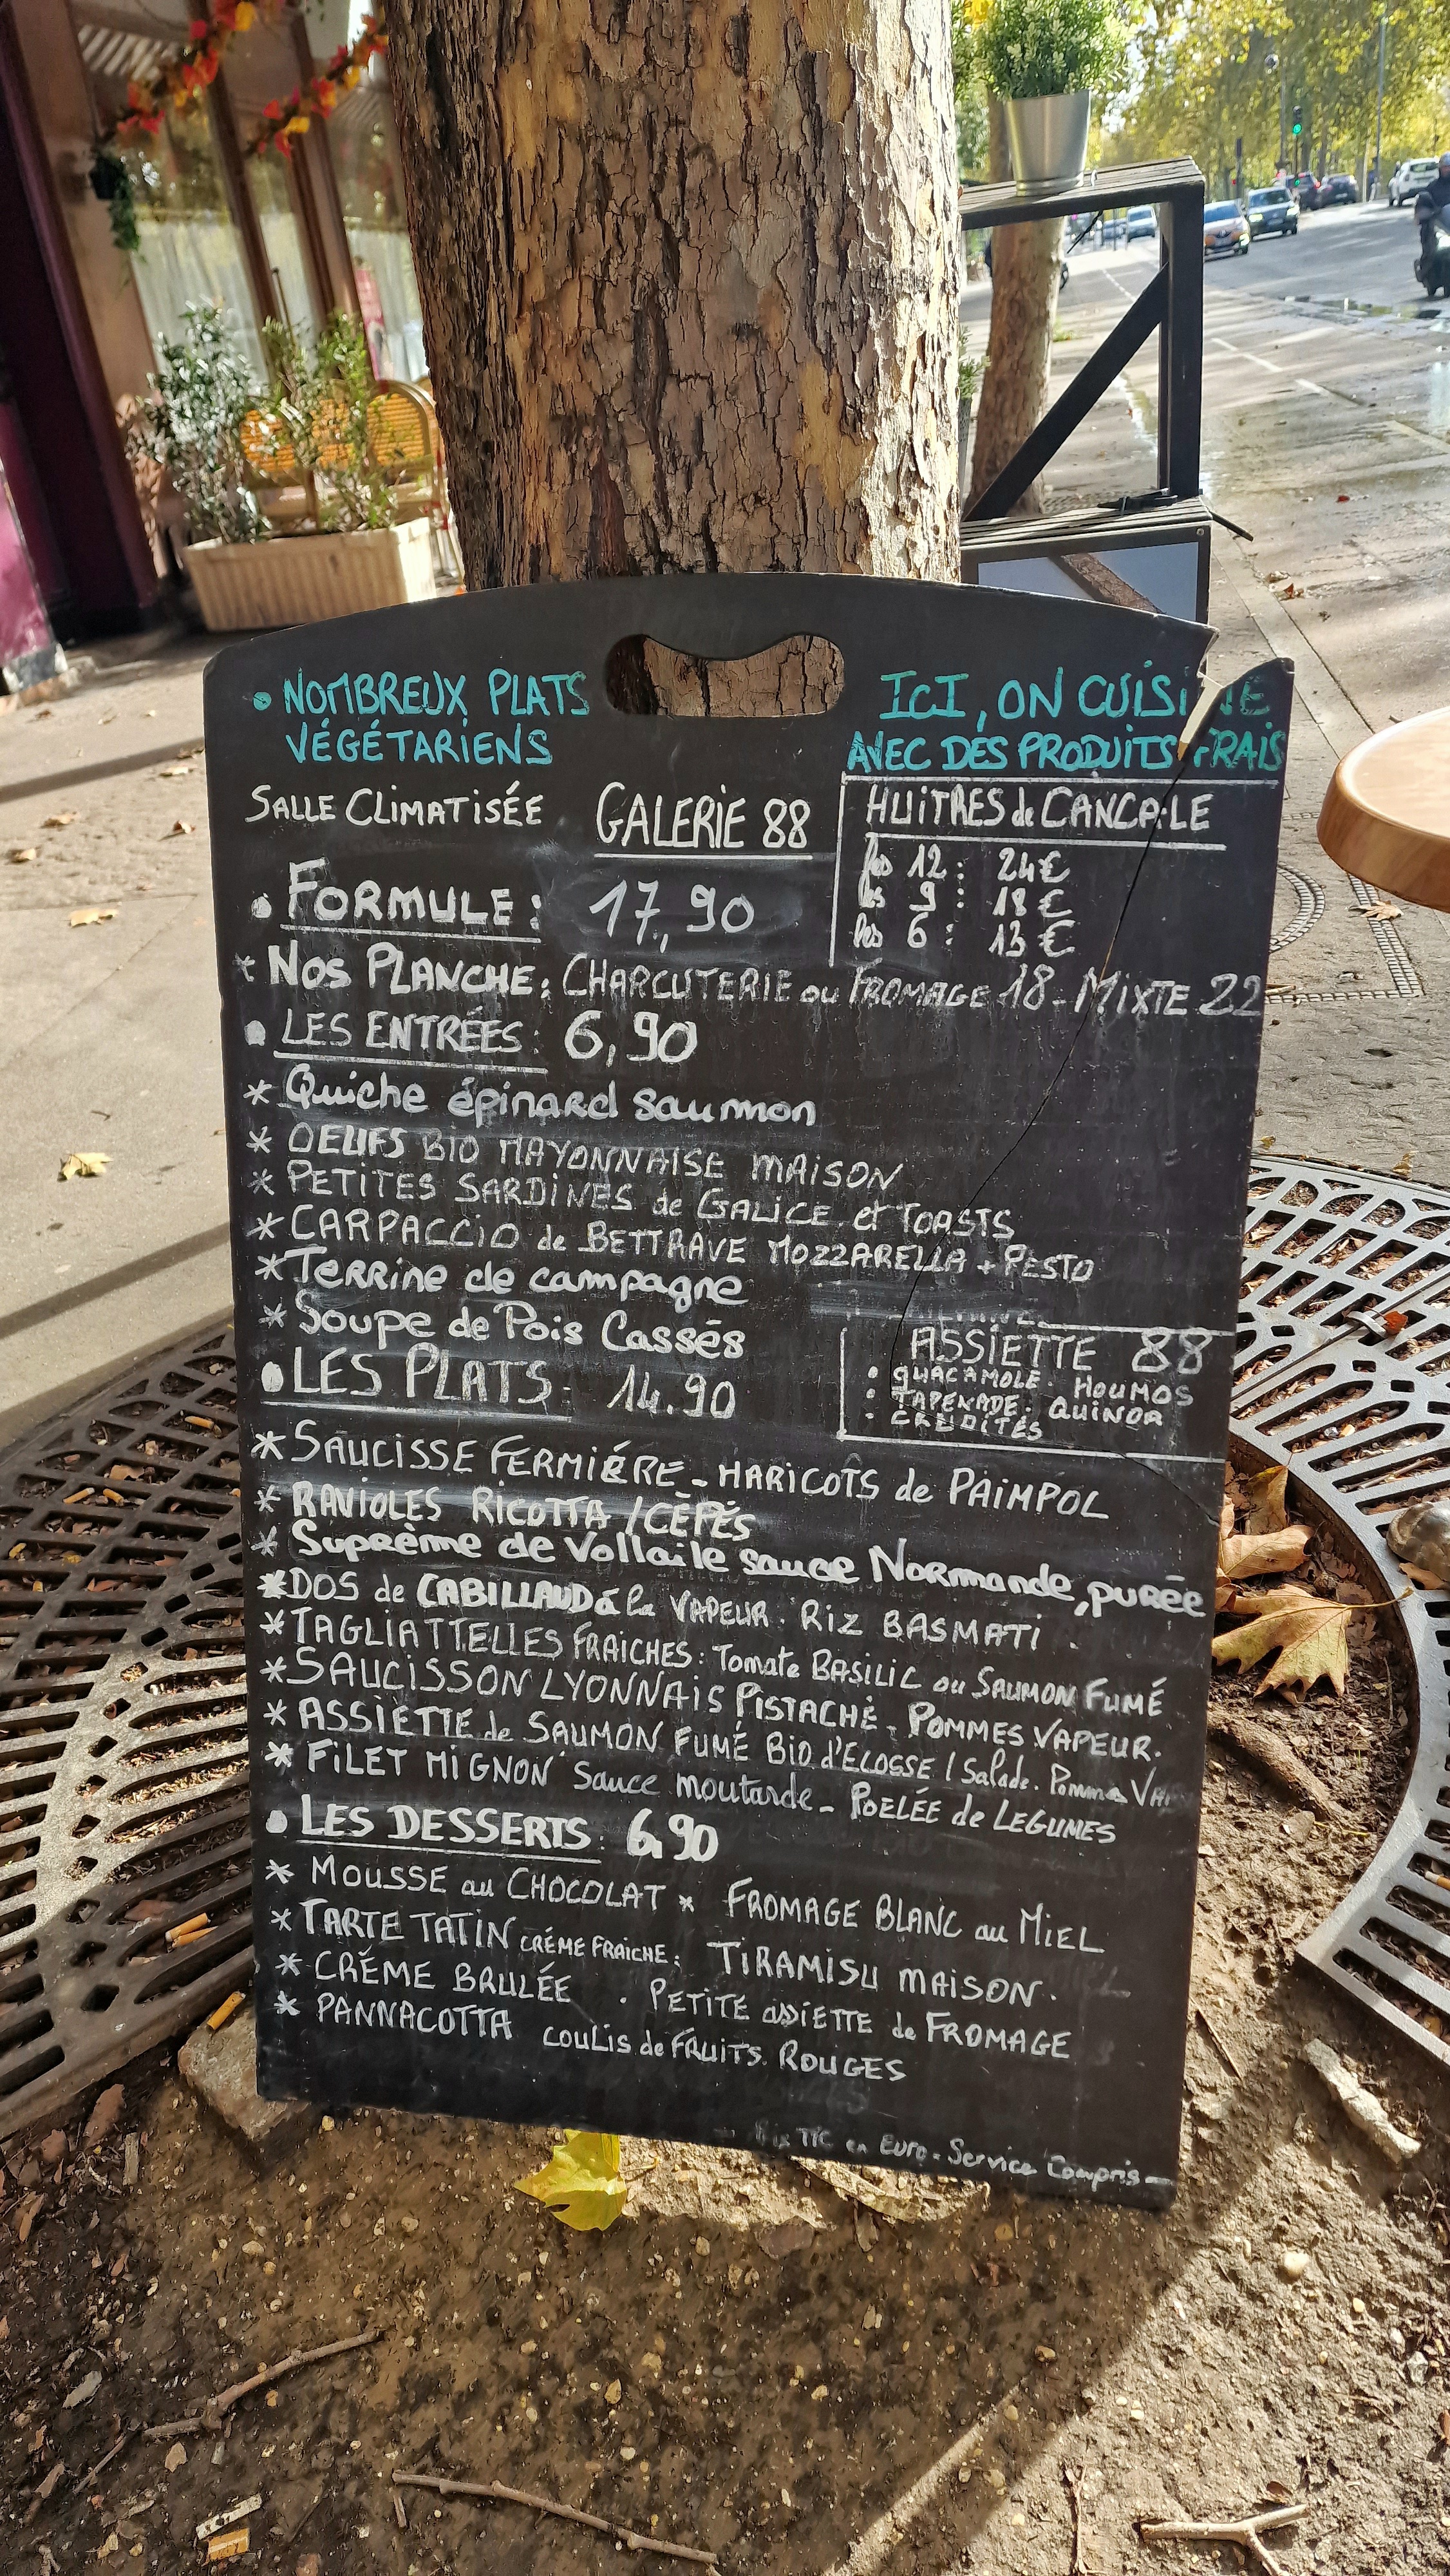 • NOMBREUX PLATS
VÉGÉTARIENS
ICI, ON CUISINE
AVEC DES PRODUITS FRAIS
SALLE CLIMATISÉE
GALERIE 88
HUITRES de CANCALE
les 12 : 24€
les 9 : 18€
les 6 : 13€
• FORMULE : 17,90
* NOS PLANCHE : CHARCUTERIE ou FROMAGE 18 - MIXTE 22
• LES ENTRÉES : 6,90
* Quiche épinard saumon
* OEUFS BIO MAYONNAISE MAISON
* PETITES SARDINES de GALICE et TOASTS
* CARPACCIO de BETTRAVE MOZZARELLA + PESTO
* Terrine de campagne
* Soupe de Pois Cassés
ASSIETTE 88
• GUACAMOLE. HOUMOS
• TAPENADE. QUINOA
• CRUDITÉS
• LES PLATS : 14.90
* SAUCISSE FERMIÉRE - HARICOTS de PAIMPOL
* RAVIOLES RICOTTA / CÉPÉS
* Suprème de Vollaile sauce Normande, purée
* DOS de CABILLAUD à la VAPEUR. RIZ BASMATI.
* TAGLIATTELLES FRAICHES : Tomate BASILIC ou SAUMON FUMÉ
* SAUCISSON LYONNAIS PISTACHÉ. POMMES VAPEUR.
* ASSIETTE de SAUMON FUMÉ BIO d'ECOSSE / Salade. Pomme
* FILET MIGNON Sauce moutarde - POELÉE de LEGUMES
• LES DESSERTS : 6,90
* MOUSSE au CHOCOLAT * FROMAGE BLANC au MIEL
* TARTE TATIN CRÉME FRAICHE : TIRAMISU MAISON.
* CRÉME BRULÉE . PETITE assiETTE de FROMAGE
* PANNACOTTA COULIS de FRUITS ROUGES
TTC en EURO - Service Compris -